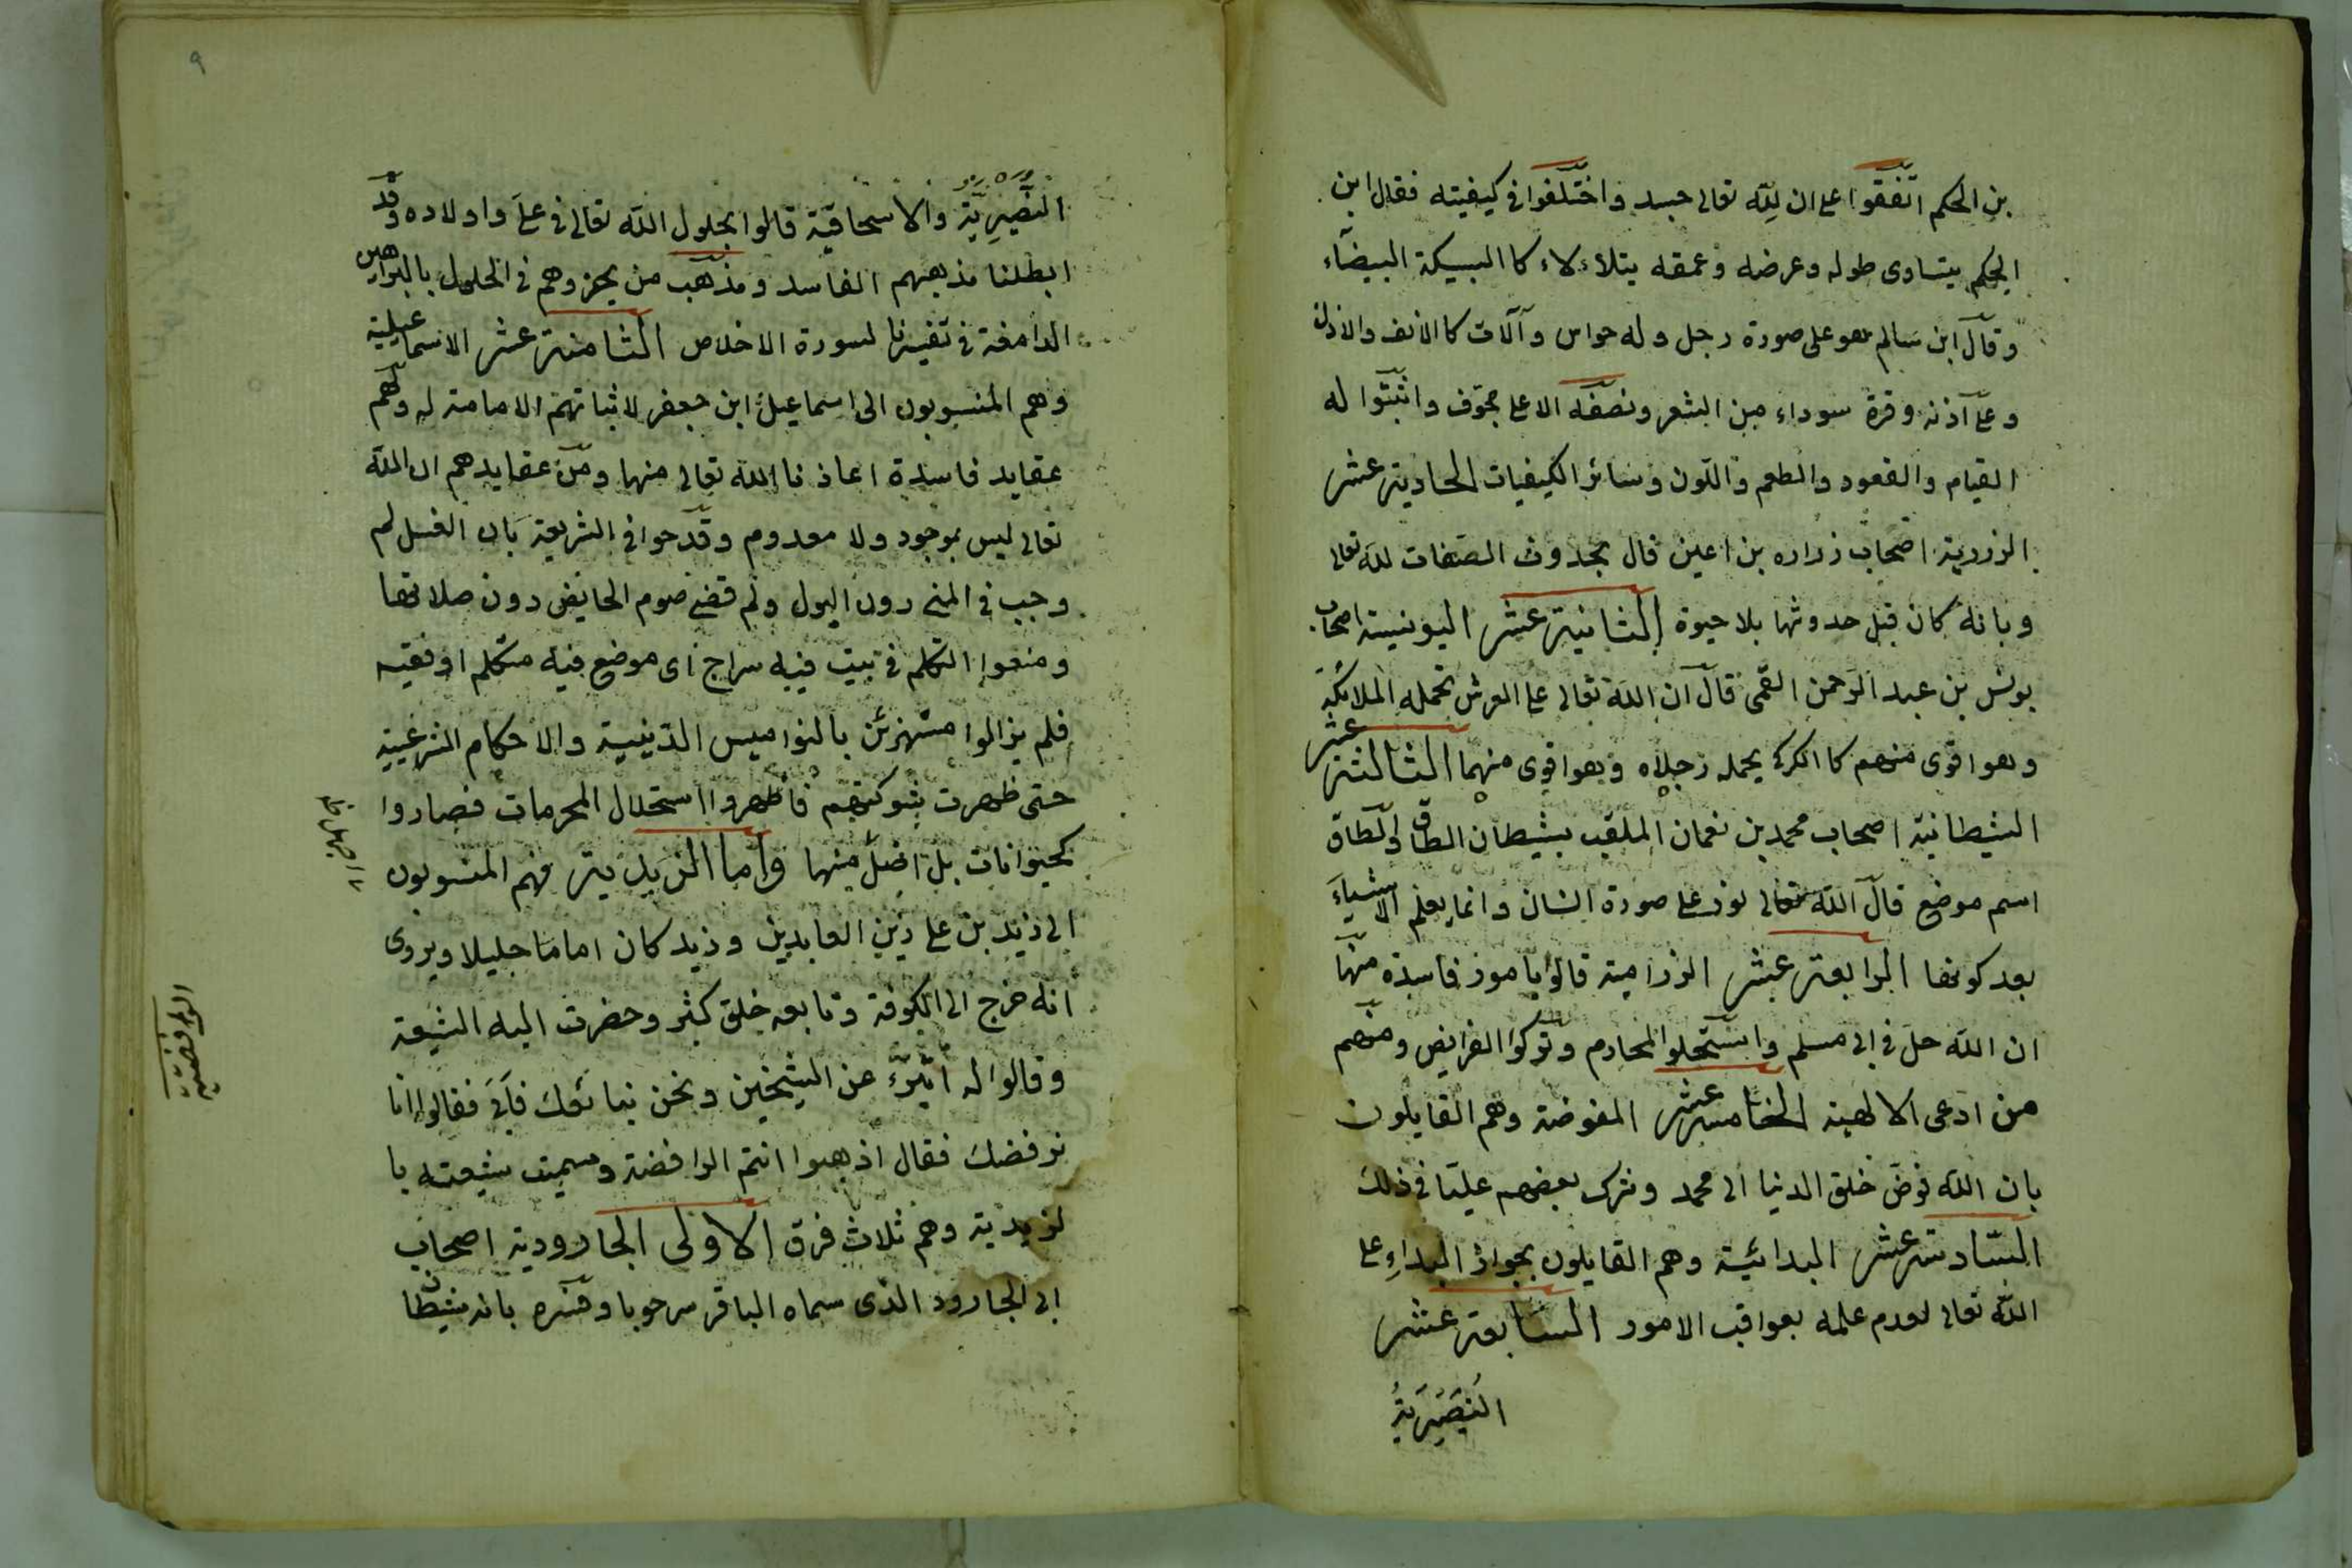 بن الحكم اتفقوا على ان لله تعالى جسد واختلفوا في كيفيته فقال ابن
الحكم يتساوى طوله وعرضه وعمقه يتلألاء كا السبيكة البيضاء
وقال ابن سالم هو على صورة رجل وله حواس وآلات كا الانف والاذن
وعلى آذنه وفرة سوداء من الشعر ونصفه الاعلى مجوف واثبتوا له
القيام والقعود والطعم واللون وسائر الكيفيات الحادية عشر
الزررية اصحاب زراره بن اعين قال بحدوث الصفات لله تعالى
وبانه كان قبل حدوثها بلا حيوة الثانية عشر اليونسية اصحاب
يونس بن عبد الرحمن القمى قال ان الله تعالى على العرش تحمله الملائكة
وهو اقوى منهم كا الكركى يحمله رجلاه وهو اقوى منهما الثالثة عشر
الشيطانية اصحاب محمد بن نعمان الملقب بشيطان الطاق والطاق
اسم موضع قال الله تعالى نور على صورة انسان وانما يعلم الاشياء
بعد كونها الرابعة عشر الرزامية قالوا بامور فاسدة منها
ان الله حل في ابى مسلم واستحلوا المحارم وتركوا الفرايض ومنهم
من ادعى الالهية الخامسة عشر المفوضة وهم القايلون
بان الله فوض خلق الدنيا الى محمد وشرك بعضهم عليا في ذلك
السادسة عشر البدائية وهم القايلون بجواز البداء على
الله تعالى لعدم علمه بعواقب الامور السابعة عشر
النصيرية
٩
النصيرية والاسحاقية قالوا بحلول الله تعالى في على واولاده وقد
ابطلنا مذهبهم الفاسد ومذهب من يحزوهم في الحلول بالبراهين
الدامغة في تفيسرنا لسورة الاخلاص الثامنة عشر الاسماعيلية
وهم المنسوبون الى اسماعيل ابن جعفر لاثباتهم الامامة له ولهم
عقايد فاسدة اعاذنا الله تعالى منها ومن عقايدهم ان الله
تعالى ليس بموجود ولا معدوم وقدحوا في الشريعة بان الغسل لم
وجب في المنى دون البول ولم قضى صوم الحايض دون صلاتها
ومنعوا التكلم في بيت فيه سراج اى موضع فيه متكلم او فقيه
فلم يزالوا مستهزئن بالنواميس الدينية والاحكام الشرعيية
حتى ظهرت شوكتهم فاظهروا استحلال المحرمات فصاروا
كحيوانات بل اضل منها واما الزيدية فهم المنسوبون
الى زيد بن على زين العابدين وزيد كان اماما جليلا ويروى
انه خرج الى الكوفة وتابعه خلق كثير وحضرت اليه الشيعة
وقالوا له اتبرء عن الشيخين ونحن نبائعك فآبى فقالوا انا
نرفضك فقال اذهبوا انتم الرافضة وسميت شيعته با
لزيدية وهم ثلاث فرق الاولى الجارودية اصحاب
ابى الجارود الذى سماه الباقر سرحوبا وفسره بانه شيطا
الرافضية